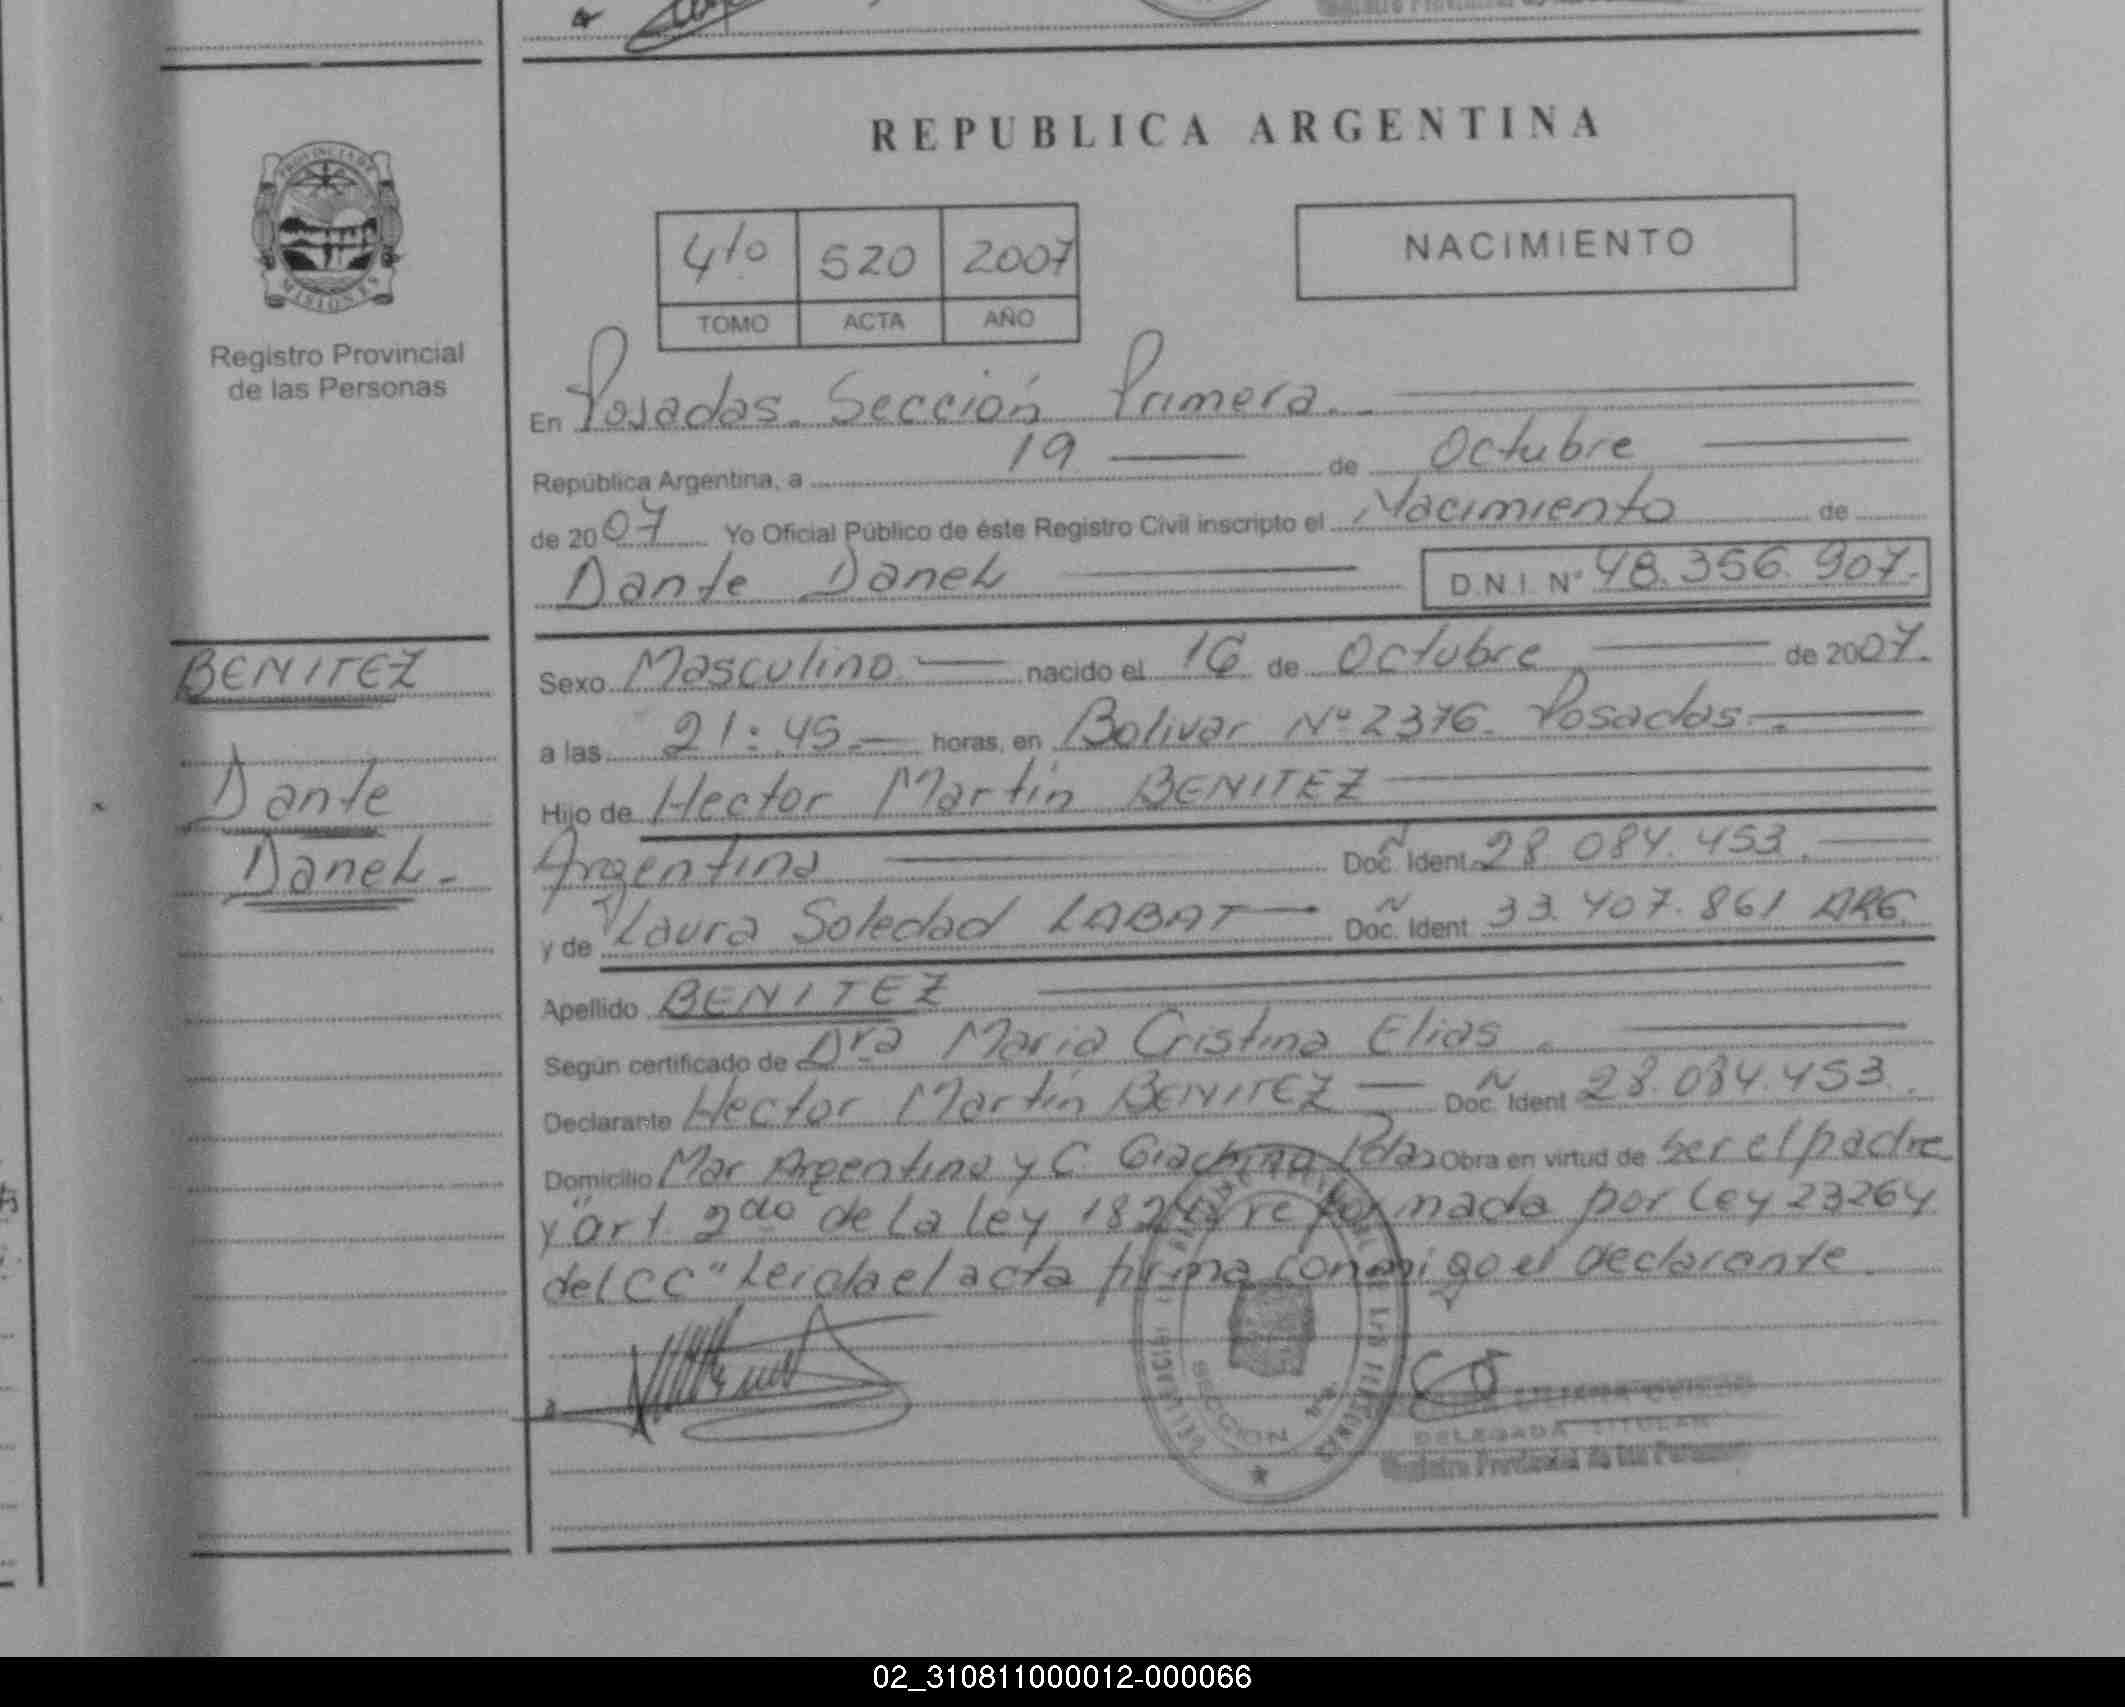 REPUBLICA ARGENTINA
PROVINCIA DE
MISIONES
Registro Provincial
de las Personas
4to 520 2007
TOMO ACTA AÑO
NACIMIENTO
En Posadas. Sección Primera.
República Argentina, a 19 de Octubre
de 2007 Yo Oficial Público de éste Registro Civil inscripto el Nacimiento de
Dante Danek D.N.I. Nº 48.356.907.
BENITEZ
Dante
Danek.
Sexo Masculino nacido el 16 de Octubre de 2007.
a las 21:45. horas, en Bolivar Nº 2376. Posadas.
Hijo de Hector Martín BENITEZ
Argentina Doc. Ident. 28.084.453.
y de Laura Soledad LABAT Doc. Ident. 33.407.861 ARG.
Apellido BENITEZ
Según certificado de Dra Maria Cristina Elias.
Declarante Hector Martín BENITEZ Doc. Ident 28.084.453.
Domicilio Mar Argentino y C. Giachino Pdas Obra en virtud de ser el padre
y "art 2do de la ley reformada por Ley 23264
del CC" Leida el acta firma conmigo el declarante.
SECCION
DELEGADA TITULAR
Registro Provincial de las Personas
02_310811000012-000066